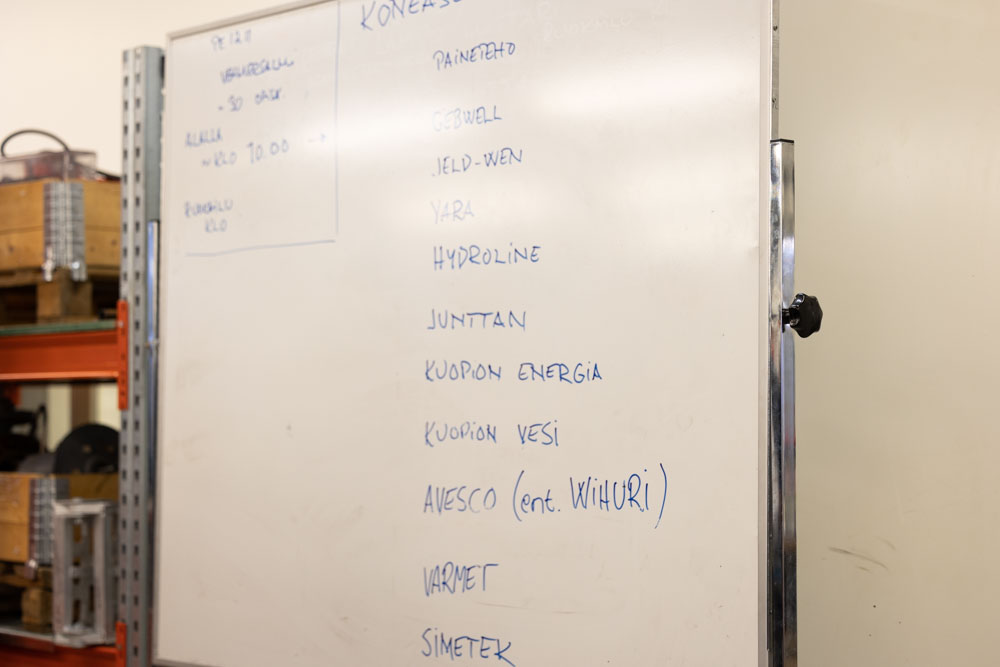 PE 12.11
~ 30
~ KLO 10.00 →
KLO
PAINETEHO
GEBWELL
JELD-WEN
YARA
HYDROLINE
JUNTTAN
KUOPION ENERGIA
KUOPION VESI
AVESCO (ent. WIHURI)
VARMET
SIMETEK